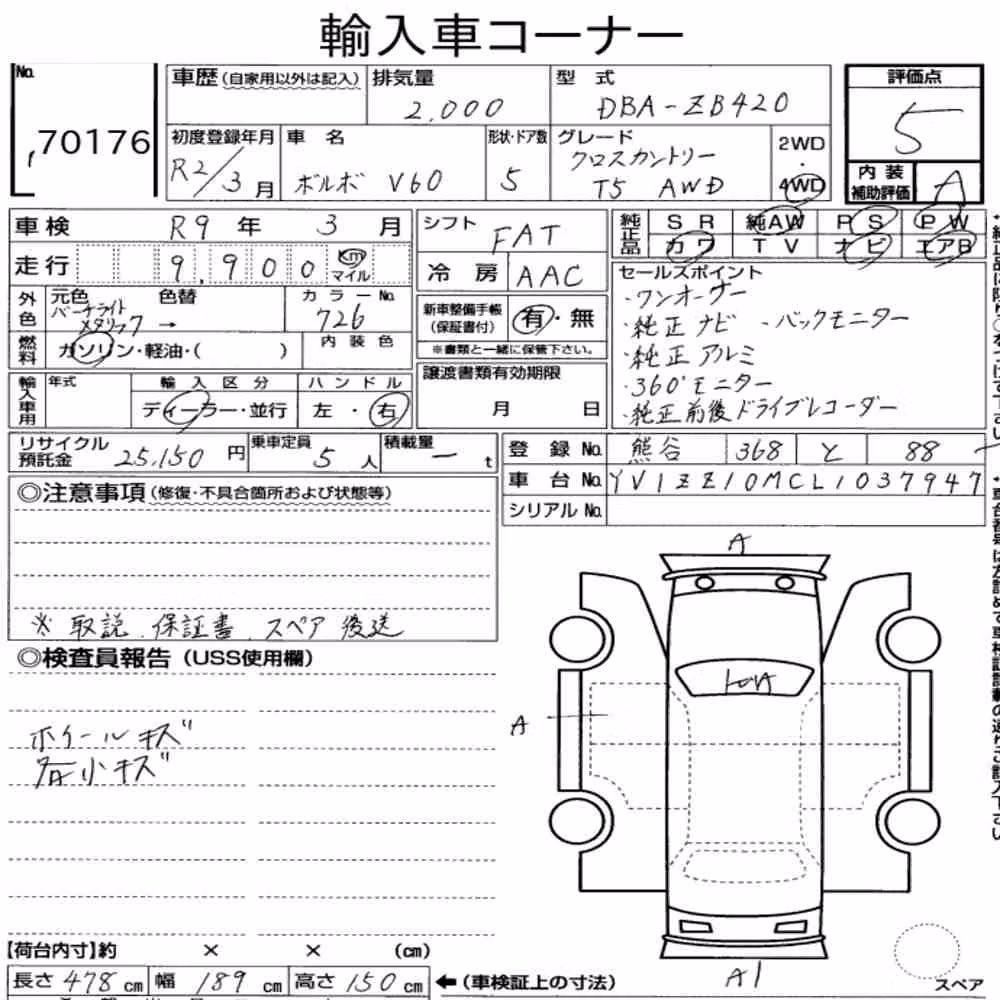 輸入車コーナー
No. 70176
車歴 (自家用以外は記入) 排気量 2,000 型式 DBA-ZB420
評価点 5
初度登録年月 R2/3月 車名 ボルボ V60 形状・ドア数 5 グレード クロスカントリー T5 AWD 2WD・4WD
内装補助評価 A
車検 R9年 3月
走行 9,900 Km マイル
外色 元色 バーチライトメタリック 色替 → カラーNo. 726
燃料 ガソリン・軽油・( ) 内装色
輸入車用 年式 輸入区分 ディーラー・並行 ハンドル 左・右
シフト FAT
冷房 AAC
新車整備手帳 (保証書付) 有・無
※書類と一緒に保管下さい。
譲渡書類有効期限
月 日
純正品 SR 純AW PS PW
カワ TV ナビ エアB
セールスポイント
・ワンオーナー
・純正ナビ ・バックモニター
・純正アルミ
・360°モニター
・純正前後ドライブレコーダー
リサイクル預託金 25,150円 乗車定員 5人 積載量 ー t
登録No. 熊谷 368 と 88
車台No. YV1ZZ10MCL1037947
シリアルNo.
◎注意事項 (修復・不具合箇所および状態等)
※ 取説、保証書、スペア 後送
◎検査員報告 (USS使用欄)
ホイールキズ
各小キズ
A
A
A1
スペア
【荷台内寸】約 × × (cm)
長さ 478cm 幅 189cm 高さ 150cm ←(車検証上の寸法)